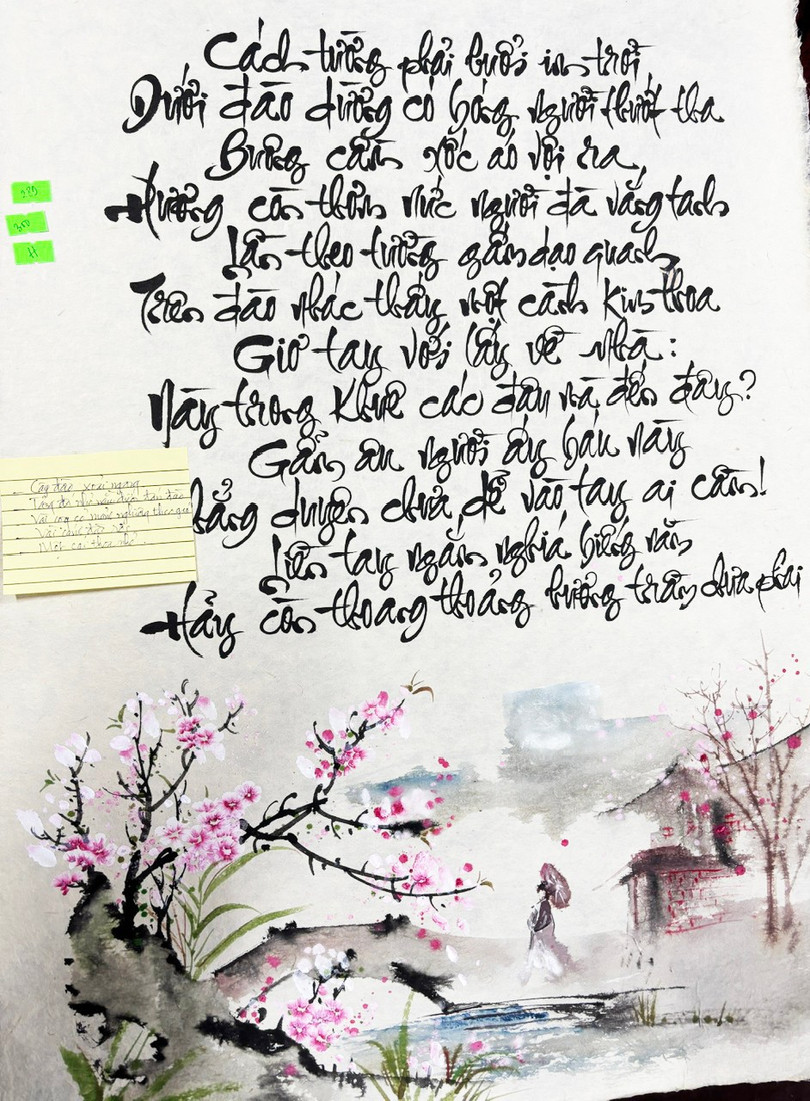 Cách tường phải buổi im trời,
Dưới đào dường có bóng người thướt tha
Buông cầm xốc áo vội ra,
Hương còn thơm nức người đà vắng tanh
Lần theo tường gấm dạo quanh,
Trên đào nhác thấy một cành Kim thoa
Giơ tay với lấy về nhà:
Này trong Khuê các đâu mà đến đây?
Gẫm âu người ấy báu này
hẳng duyên chưa dễ vào tay ai cầm!
Liền tay ngắm nghía biếng nằm
Hãy còn thoang thoảng hương trầm chưa phai
300
H
- Cây đào ngang